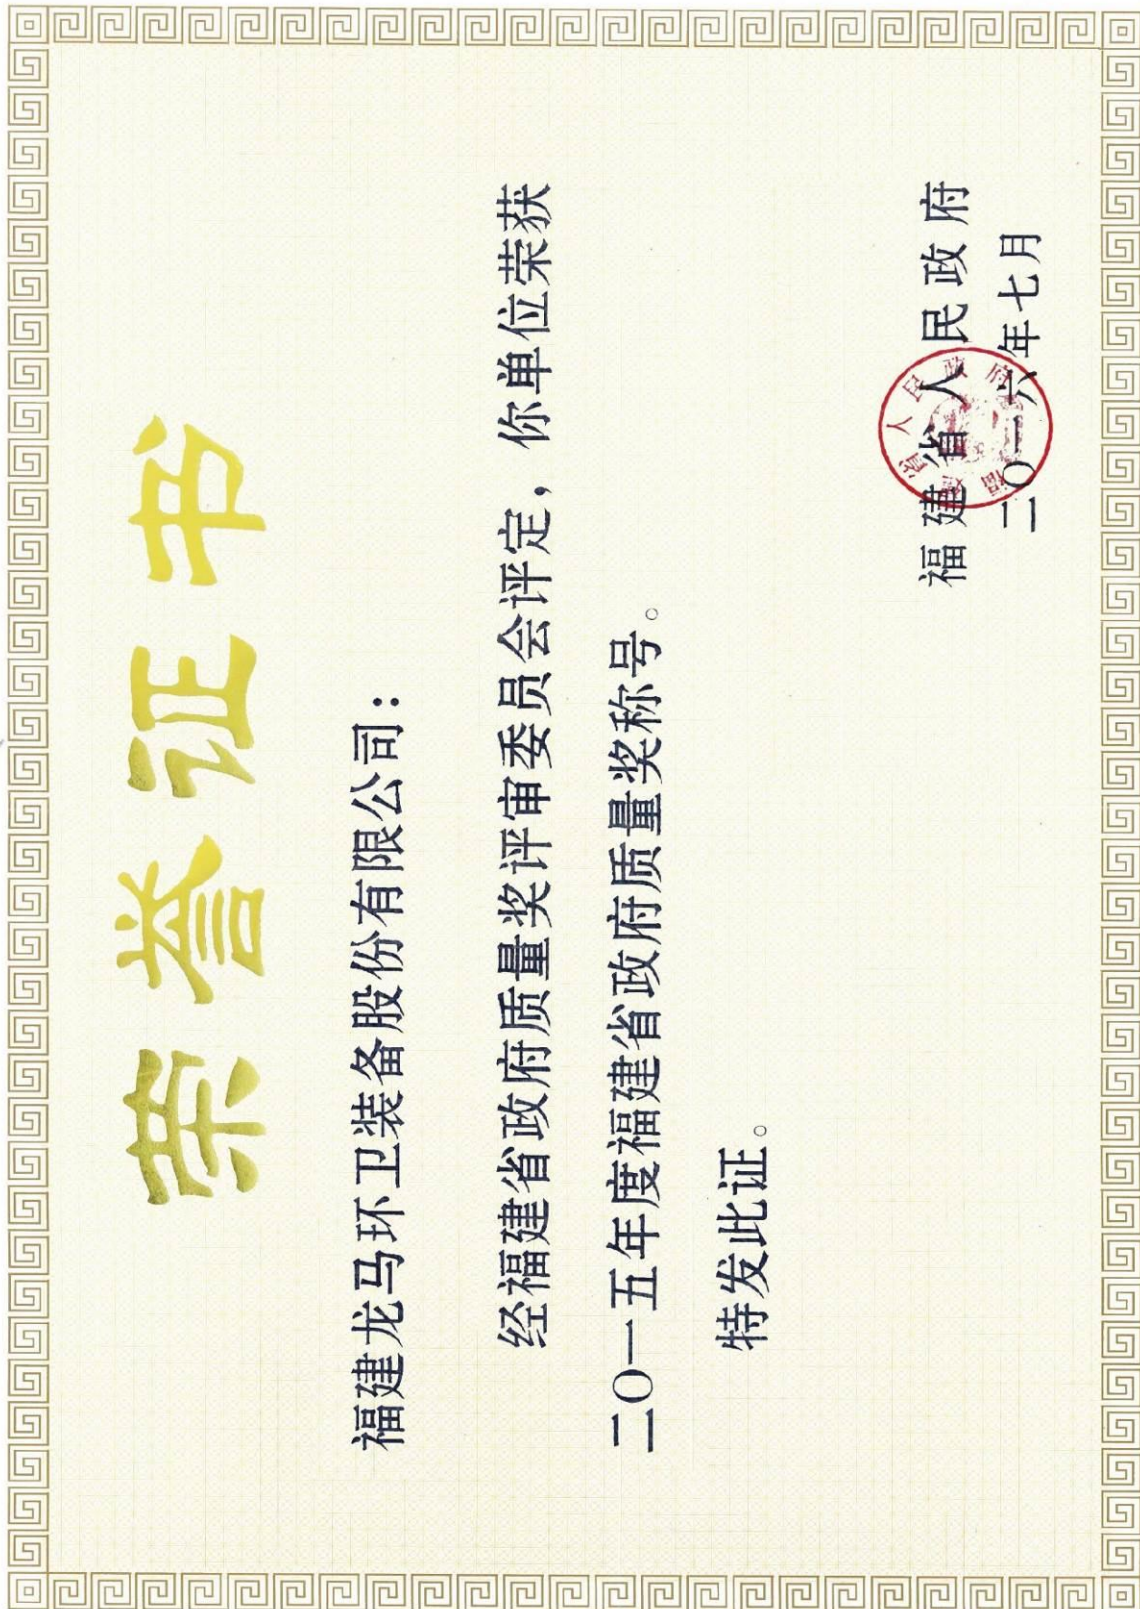 荣誉证书
福建龙马环卫装备股份有限公司：
经福建省政府质量奖评审委员会评定，你单位荣获
二〇一五年度福建省政府质量奖称号。
特发此证。
福建省人民政府
二〇一六年七月
福建省人民政府